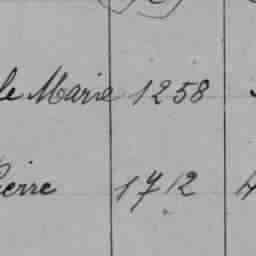 le Marie 1258
ierre 1712